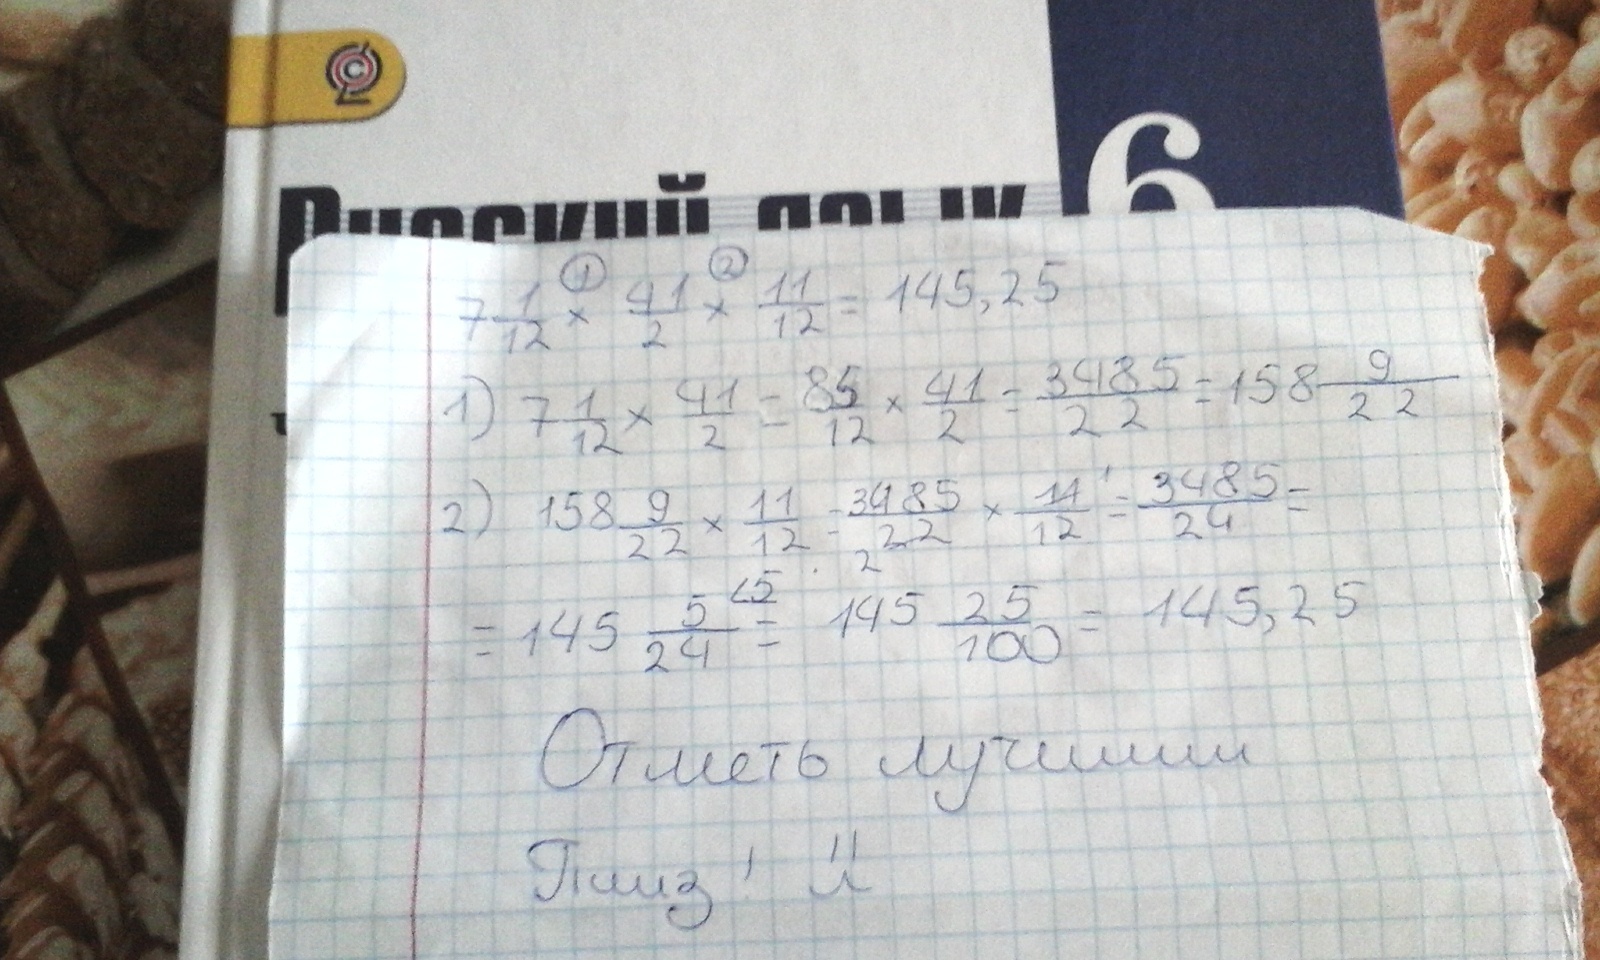 Русский язык 6
7 1/12 ① × 41/2 ② × 11/12 = 145,25
1) 7 1/12 × 41/2 = 85/12 × 41/2 = 3485/22 = 158 9/22
2) 158 9/22 × 11/12 = 3485/22 2 × 11/12 1 = 3485/24 =
= 145 5/24 25 = 145 25/100 = 145,25
Отметь лучшим
Плиз !